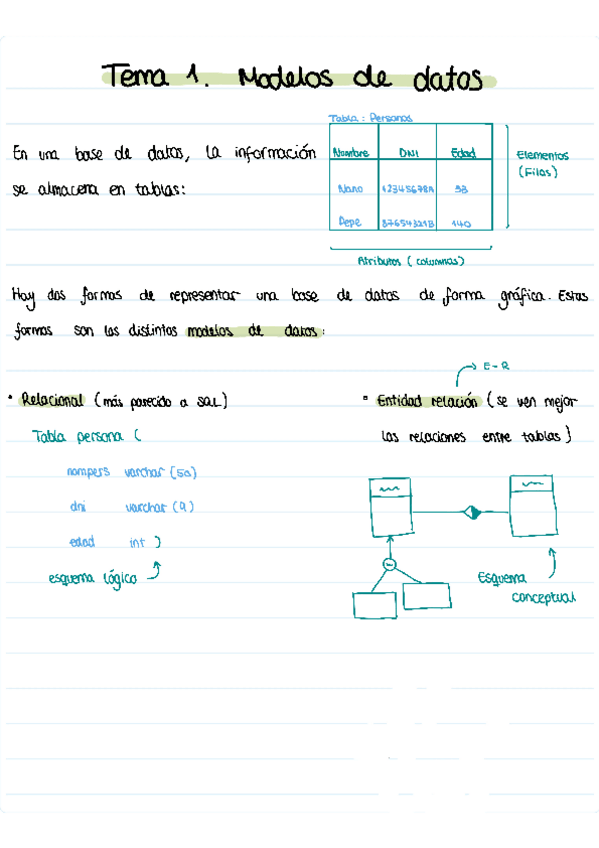 Tema 1. Modelos de datos
Tabla : Personas
En una base de datos, la información
se almacena en tablas:
Nombre DNI Edad
Nano 12345678A 53
Pepe 87654321B 140
Elementos
(Filas)
Atributos (columnas)
Hay dos formas de representar una base de datos de forma gráfica. Estas
formas son los distintos modelos de datos:
E-R
• Relacional (más parecido a SQL)
Tabla persona (
nompers varchar (50)
dni varchar (9)
edad int )
esquema lógico
• Entidad relación (se ven mejor
las relaciones entre tablas)
Esquema
conceptual